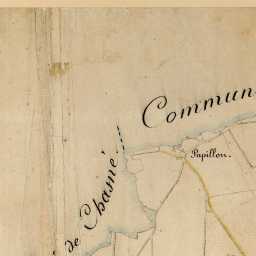 Commun
Papillon.
de Chamé